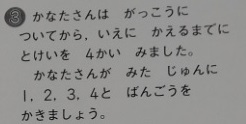 ③ かなたさんは がっこうに
ついてから，いえに かえるまでに
とけいを 4かい みました。
かなたさんが みた じゅんに
1，2，3，4と ばんごうを
かきましょう。